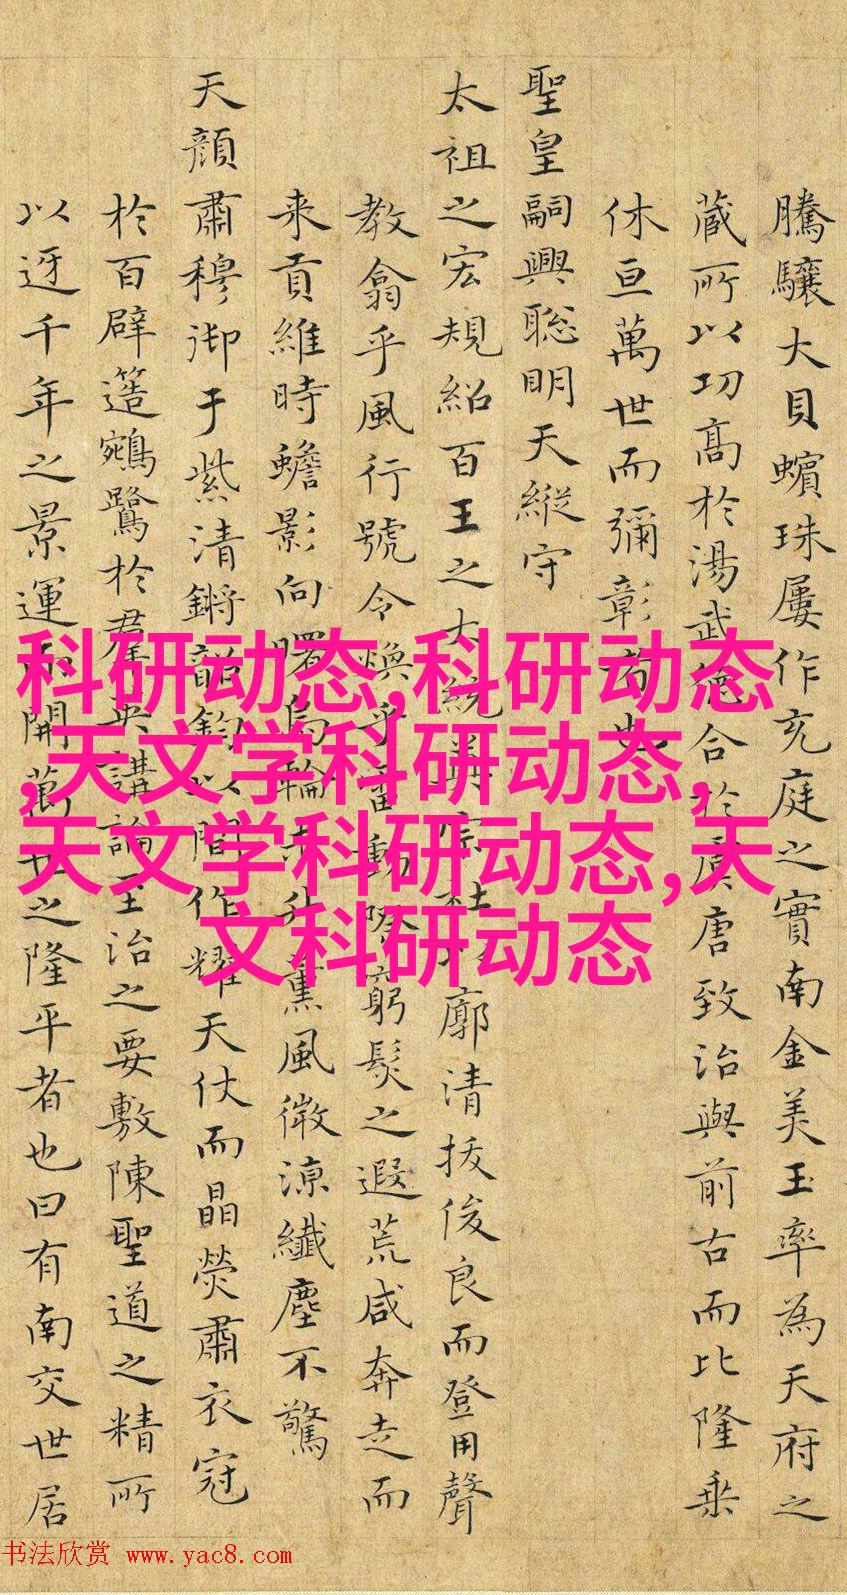 騰驤大貝蠙珠屢作充庭之實南金美玉率為天府之
藏所以功高於湯武德合於虞唐致治與前古而比隆乘
休亘萬世而彌彰者也
聖皇嗣興聡明天縦守
太祖之宏規紹百王之大統宗社以廓清拔俊良而登用聲
教翕乎風行號令煥乎雷動際窮髮之遐荒咸奔走而
来貢維時蟾影向曙烏輪未升薰風微涼纖塵不驚
天顔肅穆御于紫清鏘韶鈞以間作耀天仗而晶熒肅衣冠
於百辟簉鵷鷺於羣英講論至治之要敷陳聖道之精所
以迓千年之景運而開萬世之隆平者也曰有南交世居
科研动态,科研动态
,天文学科研动态,
天文学科研动态,天
文科研动态
书法欣赏 www.yac8.com